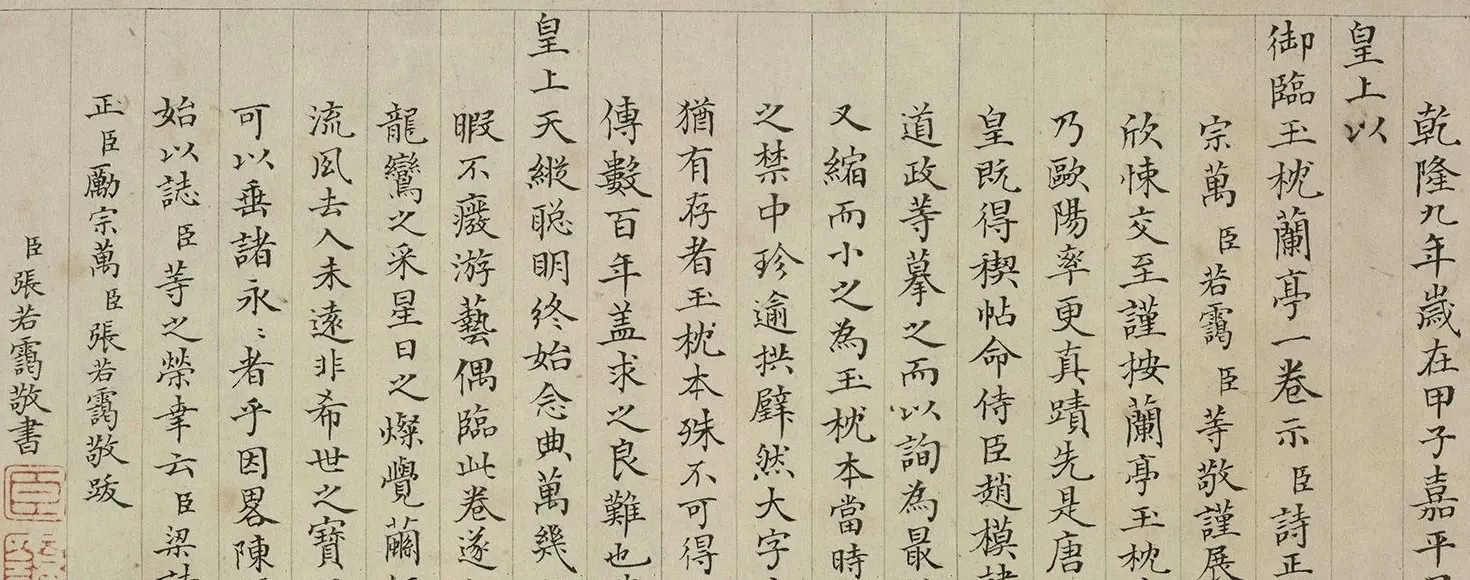 乾隆九年歲在甲子嘉平
皇上以
御臨玉枕蘭亭一卷示臣詩正
宗萬臣若靄臣等敬謹展
欣悚交至謹按蘭亭玉枕
乃歐陽率更真蹟先是唐
皇既得稧帖命侍臣趙模諸
道政等摹之而以詢為最
又縮而小之為玉枕本當時
之禁中珍逾拱璧然大字
猶有存者玉枕本殊不可得
傳數百年盖求之良難也
皇上天縱聰明終始念典萬幾
暇不癈游藝偶臨此卷遂
龍鸞之采星日之燦覺繭
流風去人未遠非希世之寶
可以垂諸永〻者乎因畧陳
始以誌臣等之榮幸云臣梁詩
正臣勵宗萬臣張若靄敬跋
臣張若靄敬書
臣